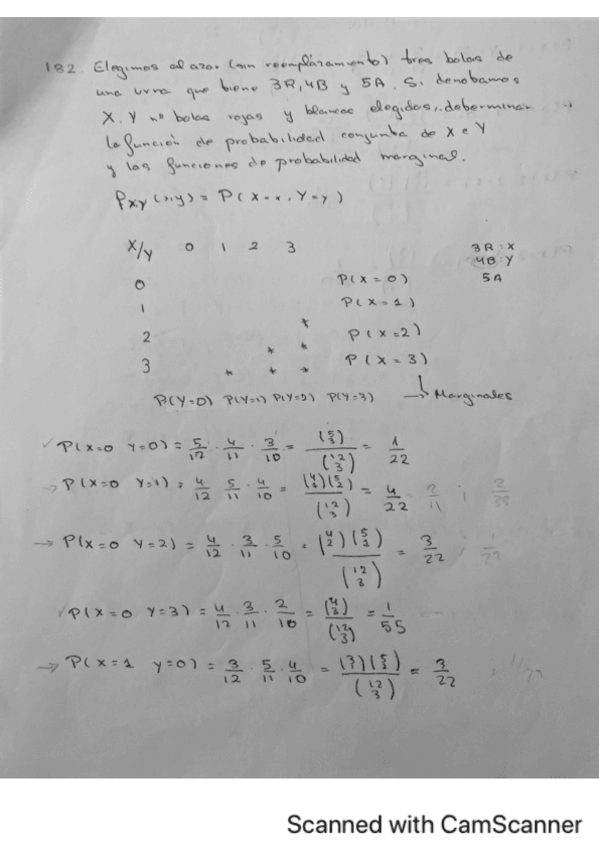 182. Elegimos al azar (sin reemplazamiento) tres bolas de
una urna que tiene 3R, 4B y 5A. Si denotamos
X, Y nº bolas rojas y blancas elegidas, determinar
la función de probabilidad conjunta de X e Y
y las funciones de probabilidad marginal.
Pxy (x,y) = P(X=x, Y=y)
X/Y 0 1 2 3
3R: X
4B: Y
0 P(X=0) 5A
1 P(X=1)
2 * P(X=2)
* *
3 * * * P(X=3)
P(Y=0) P(Y=1) P(Y=2) P(Y=3) → Marginales
✓ P(X=0 Y=0) = 5/12 · 4/11 · 3/10 = (5 3)/(12 3) = 1/22
→ P(X=0 Y=1) = 4/12 5/11 · 4/10 = (4 1)(5 2)/(12 3) = 4/22
→ P(X=0 Y=2) = 4/12 · 3/11 · 5/10 = (4 2)(5 1)/(12 3) = 3/22
✓ P(X=0 Y=3) = 4/12 · 3/11 · 2/10 = (4 3)/(12 3) = 1/55
→ P(X=1 Y=0) = 3/12 · 5/11 · 4/10 = (3 1)(5 2)/(12 3) = 3/22
Scanned with CamScanner